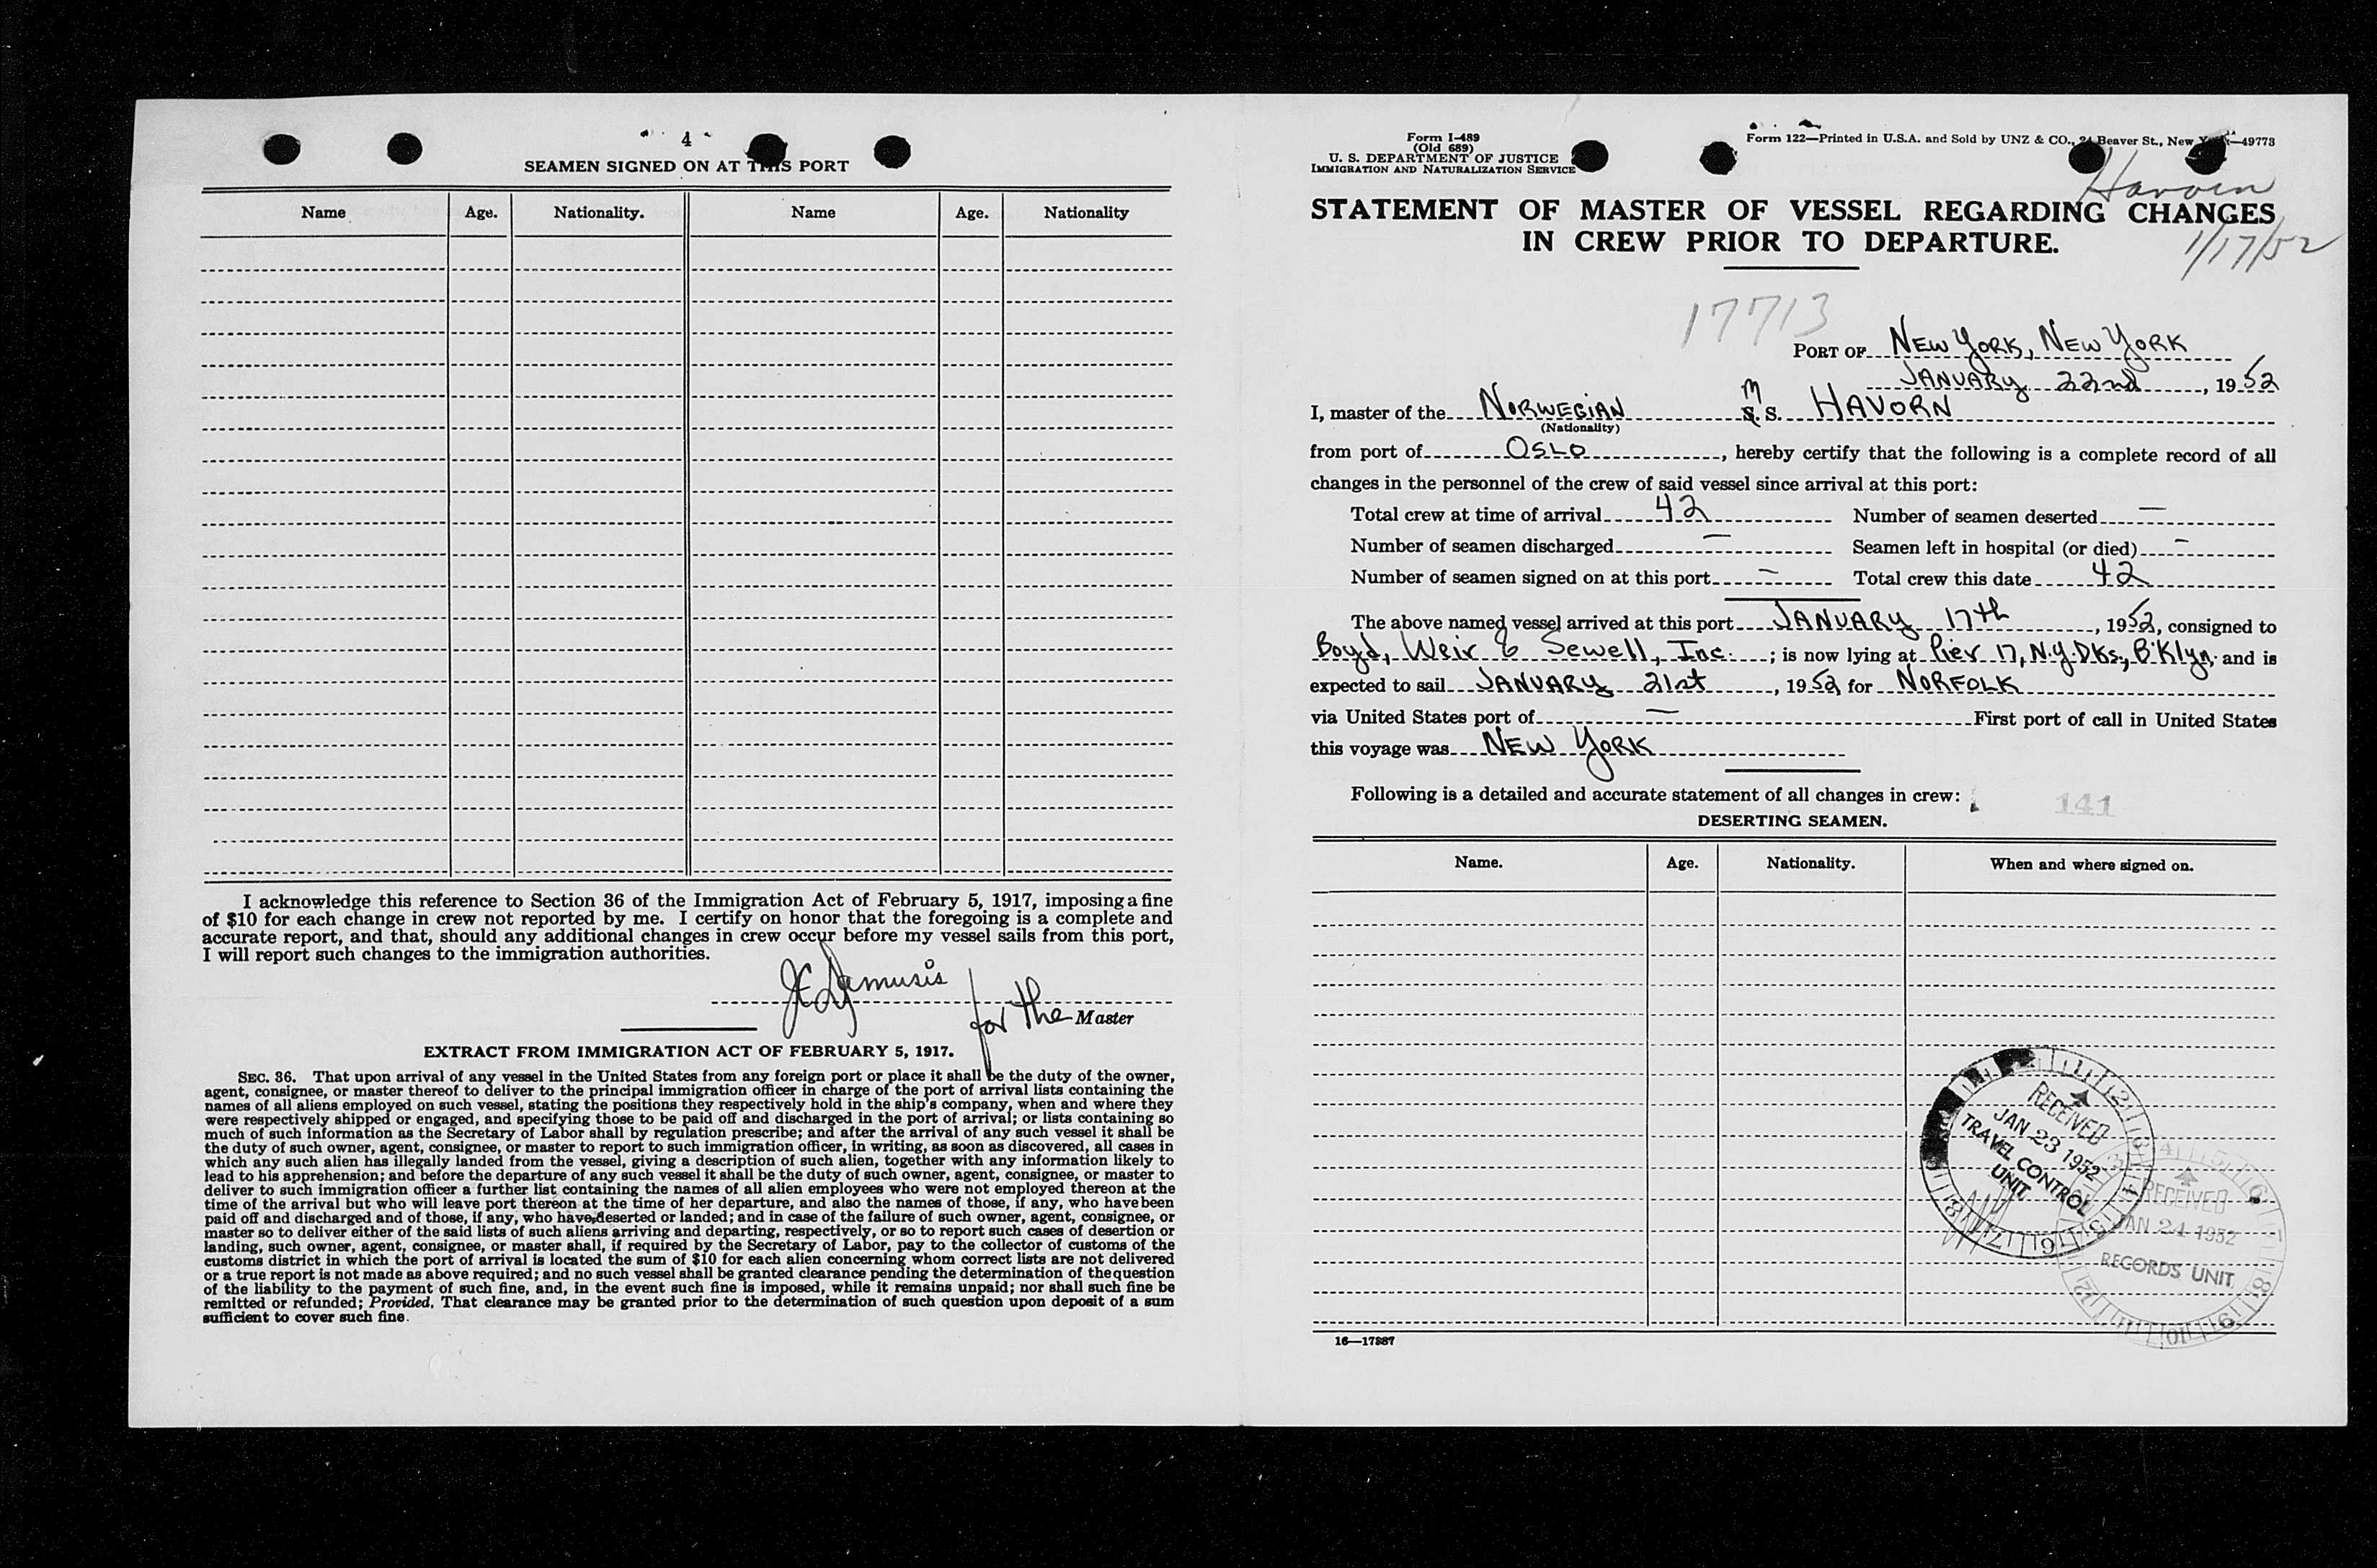 4
SEAMEN SIGNED ON AT THIS PORT
Name Age. Nationality. Name Age. Nationality
I acknowledge this reference to Section 36 of the Immigration Act of February 5, 1917, imposing a fine
of $10 for each change in crew not reported by me. I certify on honor that the foregoing is a complete and
accurate report, and that, should any additional changes in crew occur before my vessel sails from this port,
I will report such changes to the immigration authorities.
for the Master
EXTRACT FROM IMMIGRATION ACT OF FEBRUARY 5, 1917.
SEC. 36. That upon arrival of any vessel in the United States from any foreign port or place it shall be the duty of the owner,
agent, consignee, or master thereof to deliver to the principal immigration officer in charge of the port of arrival lists containing the
names of all aliens employed on such vessel, stating the positions they respectively hold in the ship's company, when and where they
were respectively shipped or engaged, and specifying those to be paid off and discharged in the port of arrival; or lists containing so
much of such information as the Secretary of Labor shall by regulation prescribe; and after the arrival of any such vessel it shall be
the duty of such owner, agent, consignee, or master to report to such immigration officer, in writing, as soon as discovered, all cases in
which any such alien has illegally landed from the vessel, giving a description of such alien, together with any information likely to
lead to his apprehension; and before the departure of any such vessel it shall be the duty of such owner, agent, consignee, or master to
deliver to such immigration officer a further list containing the names of all alien employees who were not employed thereon at the
time of the arrival but who will leave port thereon at the time of her departure, and also the names of those, if any, who have been
paid off and discharged and of those, if any, who have deserted or landed; and in case of the failure of such owner, agent, consignee, or
master so to deliver either of the said lists of such aliens arriving and departing, respectively, or so to report such cases of desertion or
landing, such owner, agent, consignee, or master shall, if required by the Secretary of Labor, pay to the collector of customs of the
customs district in which the port of arrival is located the sum of $10 for each alien concerning whom correct lists are not delivered
or a true report is not made as above required; and no such vessel shall be granted clearance pending the determination of the question
of the liability to the payment of such fine, and, in the event such fine is imposed, while it remains unpaid; nor shall such fine be
remitted or refunded; Provided, That clearance may be granted prior to the determination of such question upon deposit of a sum
sufficient to cover such fine.
Form I-489
(Old 689)
U. S. DEPARTMENT OF JUSTICE
IMMIGRATION AND NATURALIZATION SERVICE
Form 122—Printed in U.S.A. and Sold by UNZ & CO., 24 Beaver St., New York—49773
Havorn
STATEMENT OF MASTER OF VESSEL REGARDING CHANGES
IN CREW PRIOR TO DEPARTURE.
1/17/52
17713
PORT OF NEW YORK, NEW YORK
JANUARY 22nd, 1952
I, master of the NORWEGIAN M S. S. HAVORN
(Nationality)
from port of OSLO, hereby certify that the following is a complete record of all
changes in the personnel of the crew of said vessel since arrival at this port:
Total crew at time of arrival 42 Number of seamen deserted —
Number of seamen discharged — Seamen left in hospital (or died) -
Number of seamen signed on at this port — Total crew this date 42
The above named vessel arrived at this port JANUARY 17th, 1952, consigned to
Boyd, Weir & Sewell, Inc.; is now lying at Pier 17, N.Y. Dks., B'Klyn, and is
expected to sail JANUARY 21st, 1952 for NORFOLK
via United States port of — First port of call in United States
this voyage was NEW YORK
Following is a detailed and accurate statement of all changes in crew:
141
DESERTING SEAMEN.
Name. Age. Nationality. When and where signed on.
RECEIVED
JAN 23 1952
TRAVEL CONTROL
UNIT
RECEIVED
JAN 24 1952
RECORDS UNIT
16—17887